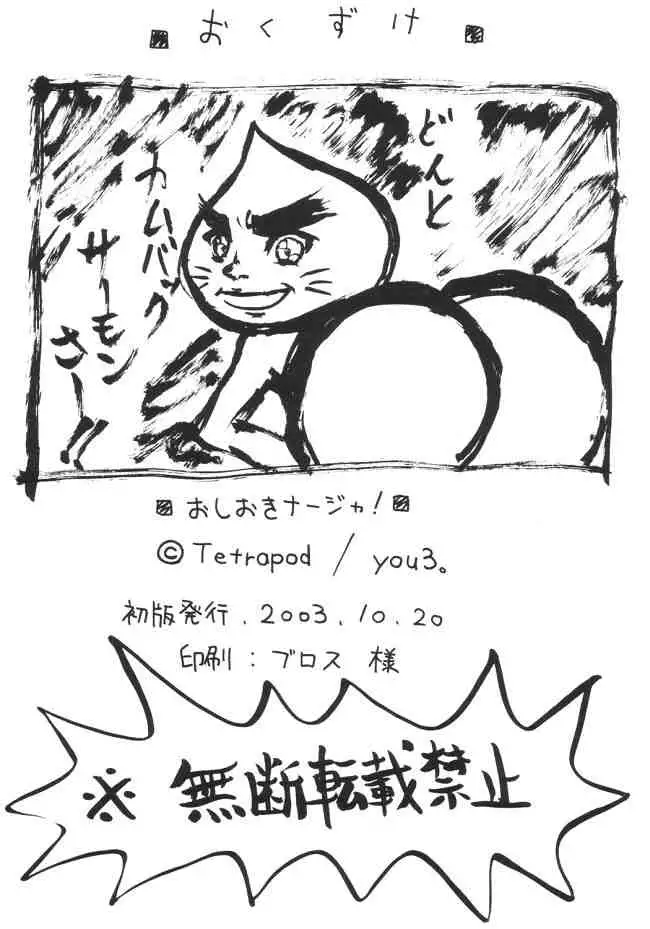 おくずけ
どんと
カムバック
サーモン
さー!!
おしおきナージャ!
© Tetrapod / you3。
初版発行. 2003. 10. 20
印刷: ブロス 様
※ 無断転載禁止